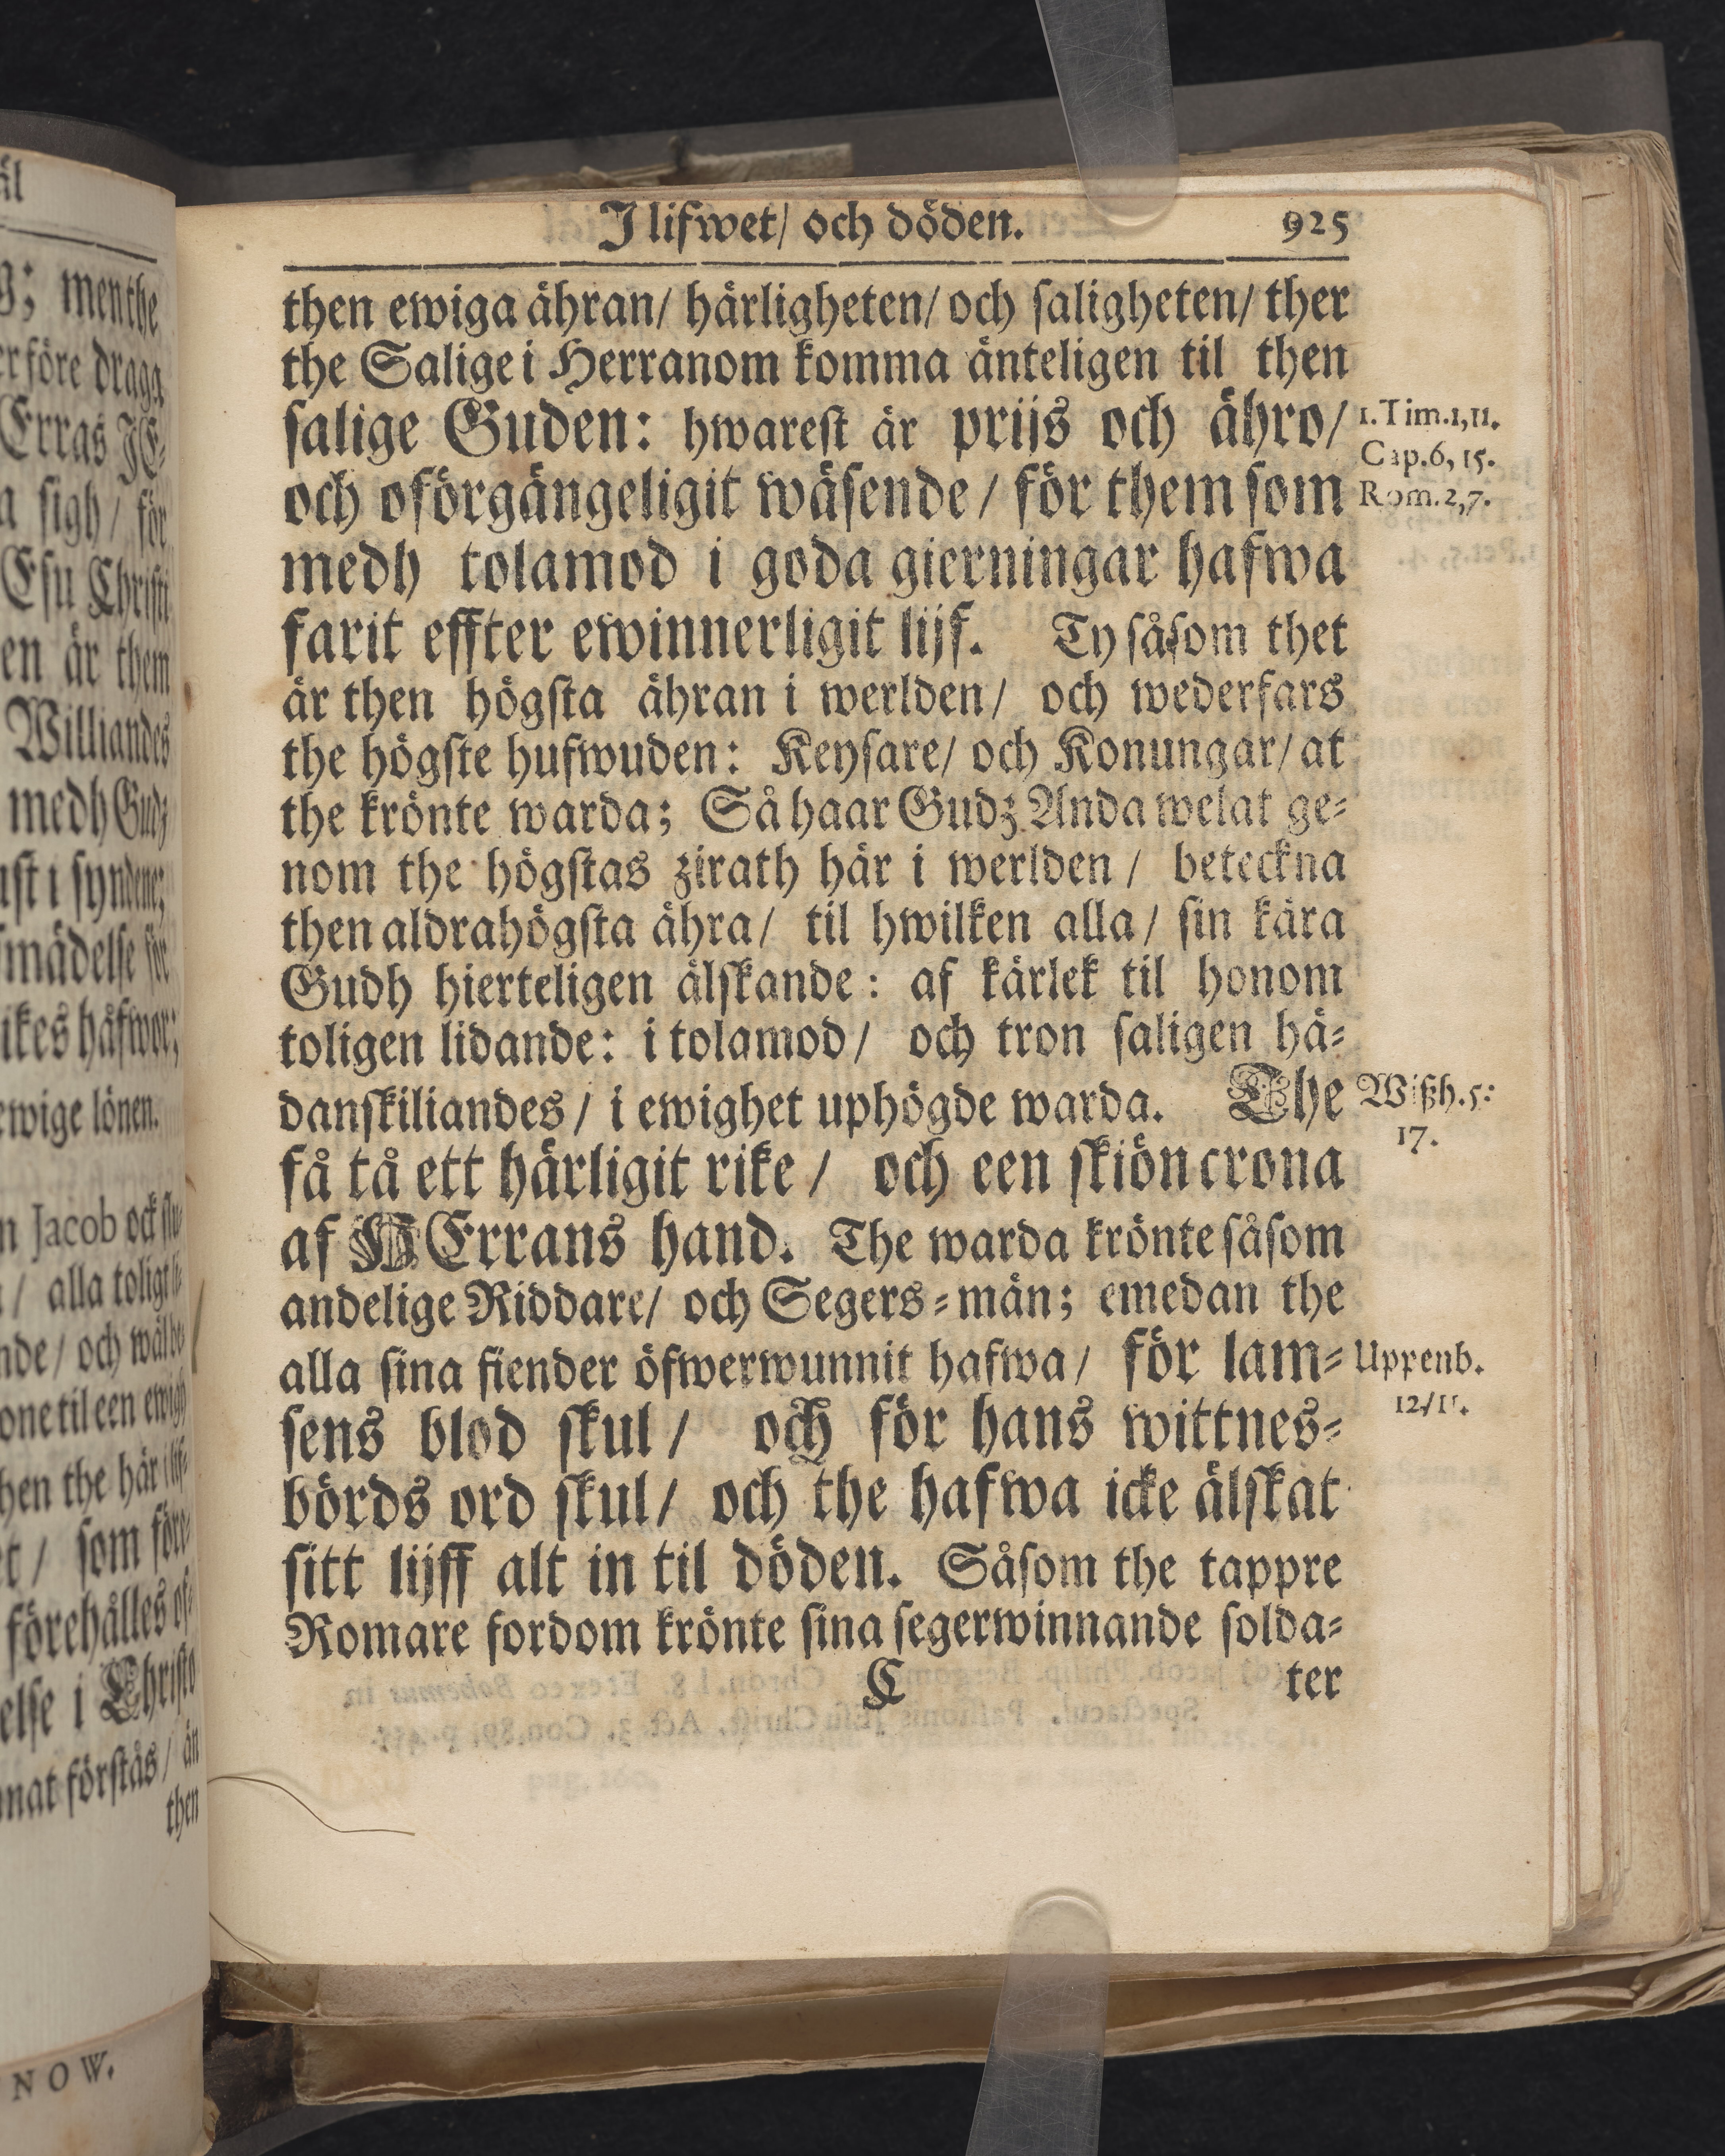 J lifwet/ och döden. 925
then ewiga ähran/ härligheten/ och saligheten/ ther
the Salige i Herranom komma änteligen til then
salige Guden: hwarest är prijs och ähro/
1. Tim. 1, 11.
och oförgängeligit wäsende/ för them som
Cap. 6, 15.
Rom. 2, 7.
medh tolamod i goda gierningar hafwa
farit effter ewinnerligit lijf. Ty såsom thet
är then högsta ähran i werlden/ och wederfars
the högste hufwuden: Keysare/ och Konungar/ at
the krönte warda; Så haar Gudz Anda welat ge-
nom the högstas zirath här i werlden/ beteckna
then aldrahögsta ähra/ til hwilken alla/ sin kära
Gudh hierteligen älskande: af kärlek til honom
toligen lidande: i tolamod/ och tron saligen hä-
danskiliandes/ i ewighet uphögde warda. The
Wißh. 5:
17.
få tå ett härligit rike/ och een skiön crona
af HErrans hand. The warda krönte såsom
andelige Riddare/ och Segers-män; emedan the
alla sina fiender öfwerwunnit hafwa/ för lam-
Uppenb.
12/11.
sens blod skul/ och för hans wittnes-
börds ord skul/ och the hafwa icke älskat
sitt lijff alt in til döden. Såsom the tappre
Romare fordom krönte sina segerwinnande solda-
C ter